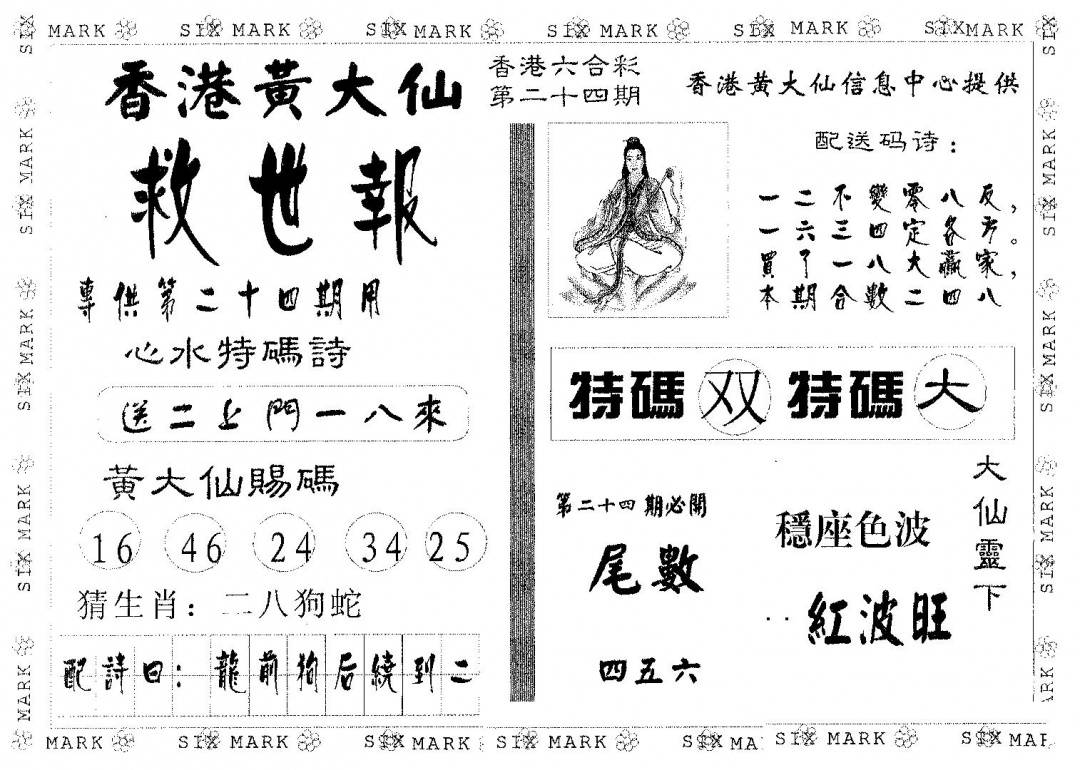 SIX MARK SIX MARK SIX MARK SIX MARK SIX MARK SIX MARK
香港黃大仙
救世報
專供第二十四期用
心水特碼詩
送二上門一八來
黃大仙賜碼
16 46 24 34 25
猜生肖：二八狗蛇
配詩曰：龍前狗后繞到二
香港六合彩
第二十四期
香港黄大仙信息中心提供
配送码诗：
一二不變零八反，
一六三四定各方。
買了一八大贏家，
本期合數二四八
特碼双 特碼大
第二十四期必開
尾數
四五六
穩座色波
紅波旺
大仙靈下
MARK SIX MARK SIX MARK SIX MARK SIX MA SIX MARK SIX MAR